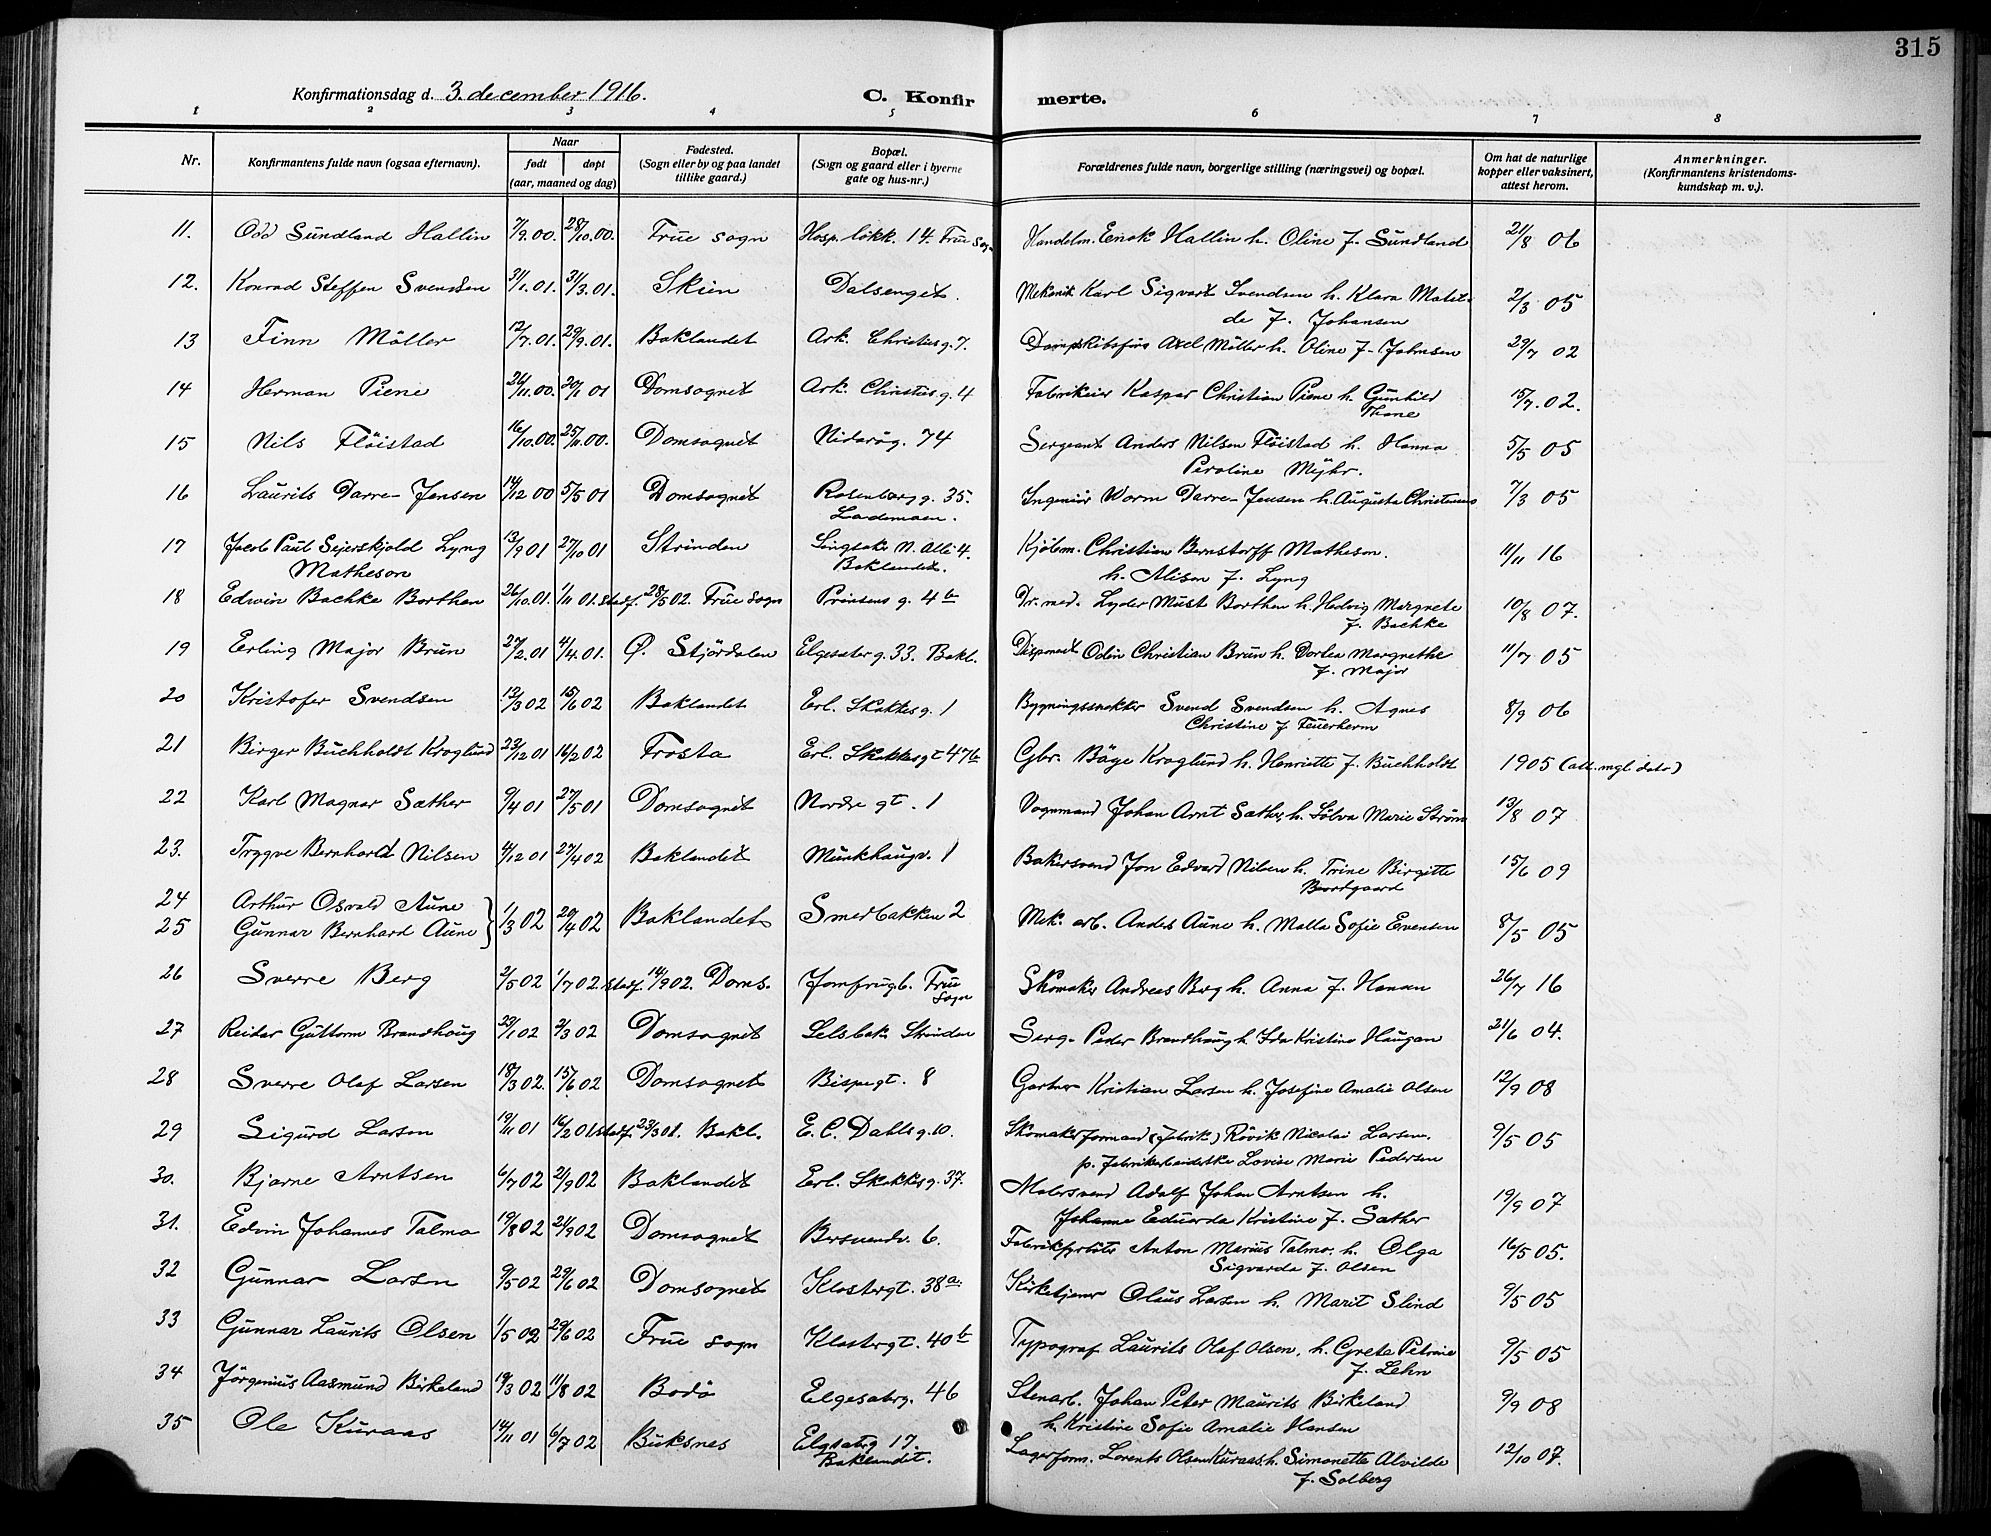 315
Konfirmationsdag d. 3. december 1916.
C. Konfirmerte.
1 2 3 4 5 6 7 8
Nr.
Konfirmantens fulde navn (ogsaa efternavn).
Naar
født døpt
(aar, maaned og dag)
Fødested.
(Sogn eller by og paa landet
tillike gaard.)
Bopæl.
(Sogn og gaard eller i byerne
gate og hus-nr.)
Forældrenes fulde navn, borgerlige stilling (næringsvei) og bopæl.
Om hat de naturlige
kopper eller vaksinert,
attest herom.
Anmerkninger.
(Konfirmantens kristendoms-
kundskap m. v.).
11. Odd Sundland Hallin 7/9.00. 28/10.00. Frue sogn Hosp. løkk. 14. Frue sogn Handelm. Enok Hallin h. Oline f. Sundland 21/8 06
12. Konrad Steffen Svendsen 31/1.01. 31/3.01. Skien Dalsenget. Mekanik Karl Sigvart Svendsen h. Klara Matil-
de f. Johansen 2/3 05
13 Finn Möller 12/7.01. 29/9.01. Baklandet Ark. Christies g. 7. Dampskibsfüre Axel Möller h. Oline f. Johnsen 29/7 02
14 Herman Piene 26/11.00. 20/1 01 Domsognet Ark. Christies g. 4 Fabrikeier Kaspar Christian Piene h. Gunhild
Thane 15/7.02.
15 Nils Flöistad 16/10.00. 25/11.00. Domsognet Nidarög. 74 Sergeant Anders Nilsen Flöistad h. Hanna
Peroline Myhr. 5/5 05
16 Laurits Darre-Jensen 14/12 00 5/5 01 Domsognet Rosenborg g. 35.
Lademoen. Ingeniör Worm Darre-Jensen h. Augusta Christensen 7/3 05
17 Jacob Paul Sejerskjold Lyng
Matheson 13/9 01 27/10 01 Strinden Singsaker N. Allé 4.
Baklandet. Kjöbm. Christian Bernstorff Matheson.
h. Alisen f. Lyng 11/11 16
18 Edwin Bachke Borthen 26/10.01. 1/11 01. stadf. 28/5 02. Frue sogn Prinsens g. 4b Dr. med. Lyder Must Borthen h. Hedvig Margrete
f. Bachke 10/8 07.
19 Erling Major Brun 27/2.01 4/4.01. Ø. Stjördalen Elgesæter g. 33. Bakl. Disponent Odin Christian Brun h. Dortea Margrethe
f. Major 11/7 05
20 Kristofer Svendsen 13/3 02 15/6 02 Baklandet Erl. Skakkes g. 1 Bygningssnekker Svend Svendsen h. Agnes
Christine f. Feuerherm 8/9 06
21 Birger Buchholdt Kroglund 23/12 01 16/2 02 Frosta Erl. Skakkes gt 47b Gbr. Böye Kroglund h. Henriette f. Buchholdt 1905 (att. mgl dato)
22 Karl Magnar Sæther 9/4 01 27/5 01 Domsognet Nordre gt. 1 Vognmand Johan Arnt Sæther, h. Sölva Marie Ström 13/8 07
23. Trygve Bernhard Nilsen 4/12 01 27/4 02 Baklandet Munkhaugv. 1 Bakersvend Jon Edvard Nilsen h. Trine Birgitte
Baardgaard 15/6 09
24 Arthur Osvald Aune
25 Gunnar Bernhard Aune 1/3 02 20/4 02 Baklandet Smedbakken 2 Mek. arb. Anders Aune h. Malla Sofie Evensen 8/5 05
26 Sverre Berg 2/5 02 1/7 02. stadf. 14/9 02. Doms. Jomfrugt. Frue
sogn Skomaker Andreas Berg h. Anna f. Hansen 26/7 16
27 Reidar Guttorm Brandhoug 23/1 02 2/3 02 Domsognet Selsbak Strinden Serg. Peder Brandhoug h. Ida Kristine Haugan 21/6 04.
28 Sverre Olaf Larsen 18/3 02. 15/6 02 Domsognet Bispegt. 8 Gartner Kristian Larsen h. Josefine Amalie Olsen 12/9 08
29 Sigurd Larsen 19/11 01 16/2 01 stadf. 23/3 01. Bakl. E. C. Dahls g. 10. Skomakerformand (fabrik) Rövik Nicolai Larsen.
p. Fabrikarbeiderske Lovise Marie Pedersen 9/5 05
30. Bjarne Arntsen 6/7 02 21/9 02 Baklandet Erl. Skakkes g. 37. Malersvend Adolf Johan Arntsen h.
Johanne Eduarda Kristine f. Sæther 19/9 07
31. Edvin Johannes Talmo 19/8 02 21/9 02 Domsognet Bersvendv. 6. Fabrikfyrböter Anton Marius Talmo, h. Olga
Sigvarda f. Olsen 16/5 05.
32 Gunnar Larsen 9/5 02 29/6 02 Domsognet Klostergt. 38a. Kirketjener Olaus Larsen h. Marit Slind 9/5 05
33 Gunnar Laurits Olsen 1/5 02 29/6 02 Frue sogn Klostergt. 40b Typograf Laurits Olaf Olsen, h. Grete Petrine
f. Lehn 9/5 05
34 Jörgenius Aasmund Birkeland 19/3 02 11/8 02 Bodö Elgesæterg. 46 Stenarb. Johan Peter Maurits Birkeland
h. Kristine Sofie Amalie Hansen 9/9 08
35 Ole Kuraas 14/11 01 6/7 02 Buksnes Elgesæterg 17.
Baklandet. Lagerform. Lorents Olsen Kuraas. h. Simonette Alvilde
f. Solberg 12/10 07.